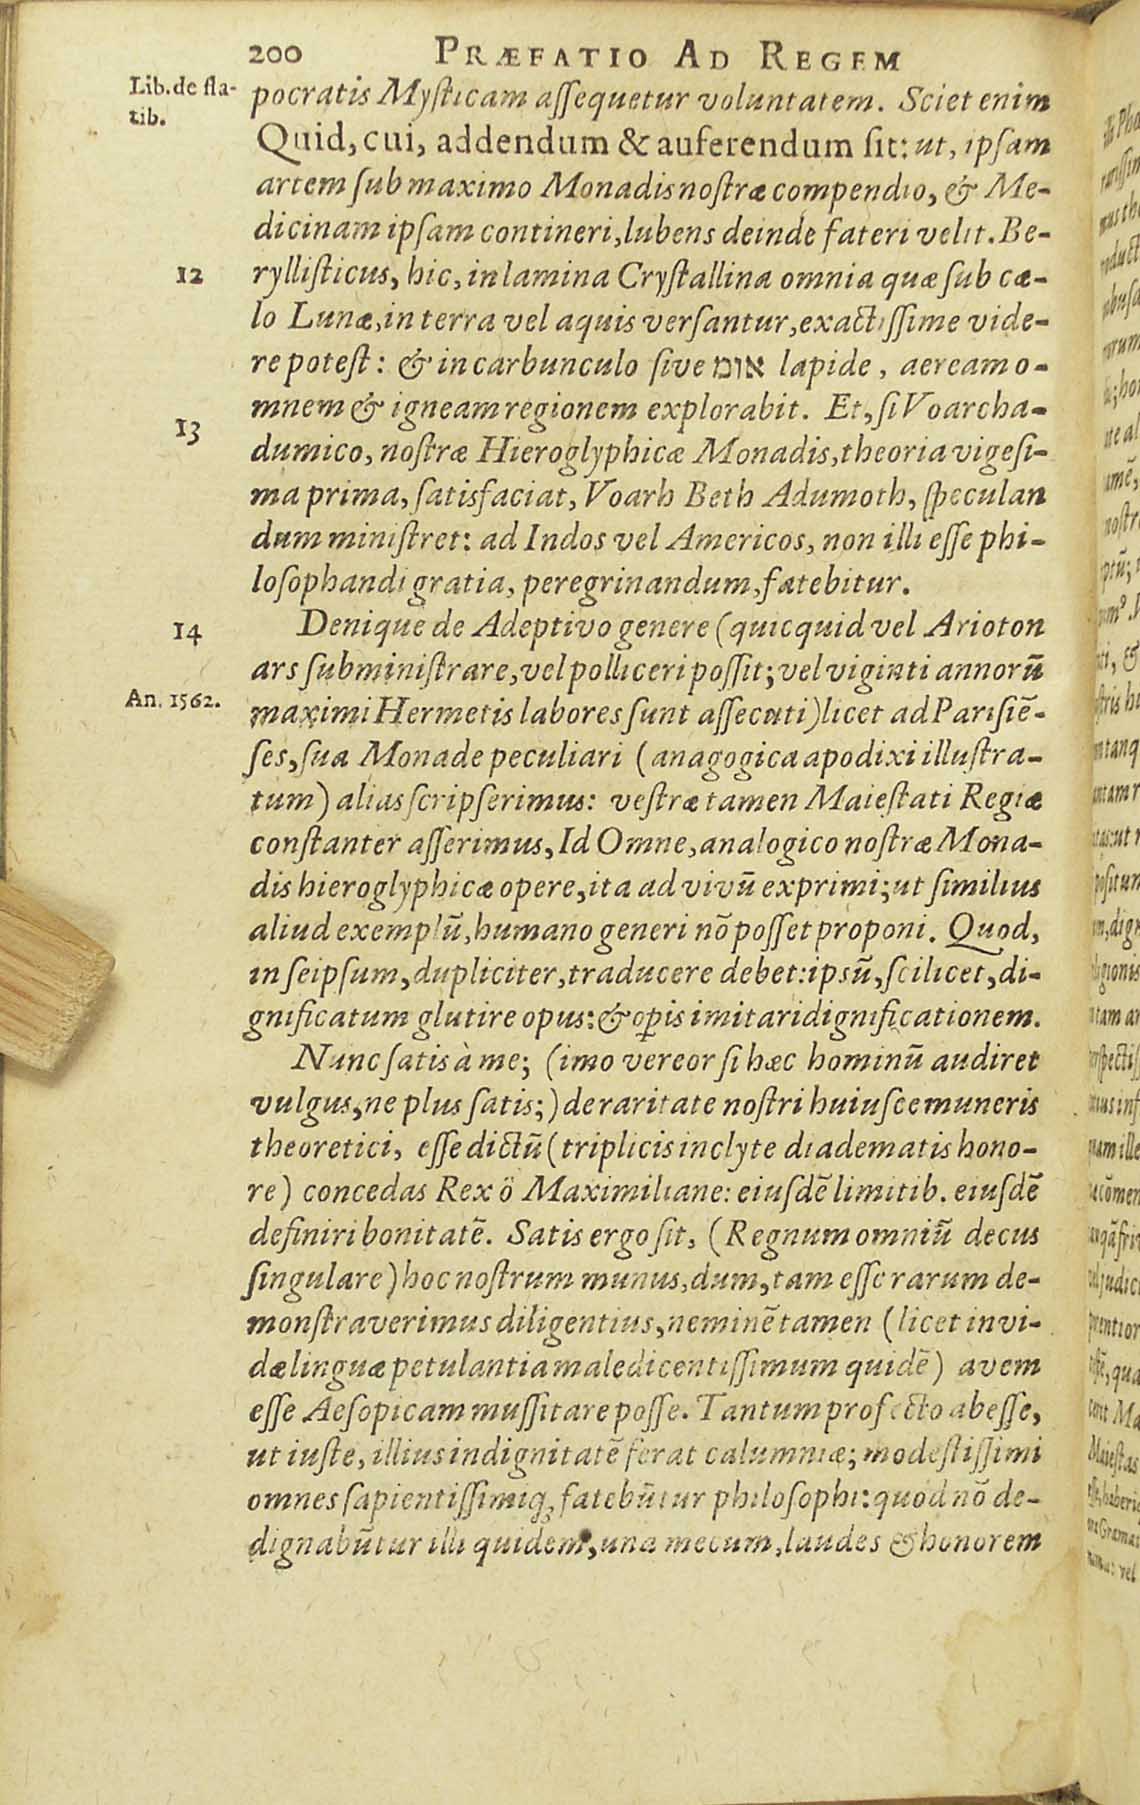 200 PRÆFATIO AD REGEM
Lib. de fla-
tib.
pocratis Mysticam assequetur voluntatem. Sciet enim
Quid, cui, addendum & auferendum sit: ut, ipsam
artem sub maximo Monadis nostræ compendio, & Me-
dicinam ipsam contineri, lubens deinde fateri velit. Be-
12
ryllisticus, hic, in lamina Crystallina omnia quæ sub cæ-
lo Lunæ, in terra vel aquis versantur, exactissime vide-
re potest: & in carbunculo sive אומ lapide, aeream o-
mnem & igneam regionem explorabit. Et, si Voarcha-
13
dumico, nostræ Hieroglyphicæ Monadis, theoria vigesi-
ma prima, satisfaciat, Voarh Beth Adumoth, speculan
dum ministret: ad Indos vel Americos, non illi esse phi-
losophandi gratia, peregrinandum, fatebitur.
14
Denique de Adeptivo genere (quicquid vel Arioton
ars subministrare, vel polliceri possit; vel viginti annorū
An. 1562.
maximi Hermetis labores sunt assecuti) licet ad Parisiē-
ses, sua Monade peculiari (anagogica apodixi illustra-
tum) alias scripserimus: vestræ tamen Maiestati Regiæ
constanter asserimus, Id Omne, analogico nostræ Mona-
dis hieroglyphicæ opere, ita ad vivū exprimi; ut similius
aliud exemplū, humano generi nō posset proponi. Quod,
in seipsum, dupliciter, traducere debet: ipsū, scilicet, di-
gnificatum glutire opus: & oꝑis imitari dignificationem.
Nunc satis à me; (imo vereor si hæc hominū audiret
vulgus, ne plus satis;) de raritate nostri huiusce muneris
theoretici, esse dictū (triplicis inclyte diadematis hono-
re) concedas Rex ö Maximiliane: eiusdē limitib. eiusdē
definiri bonitatē. Satis ergo sit, (Regnum omniū decus
singulare) hoc nostrum munus, dum, tam esse rarum de-
monstraverimus diligentius, neminē tamen (licet invi-
dæ linguæ petulantia maledicentissimum quidē) avem
esse Aesopicam mussitare posse. Tantum profecto abesse,
ut iuste, illius indignitatē ferat calumniæ; modestissimi
omnes sapientissimiq̨, fatebūtur philosophi: quòd nō de-
dignabūtur illi quidem, una mecum, laudes & honorem